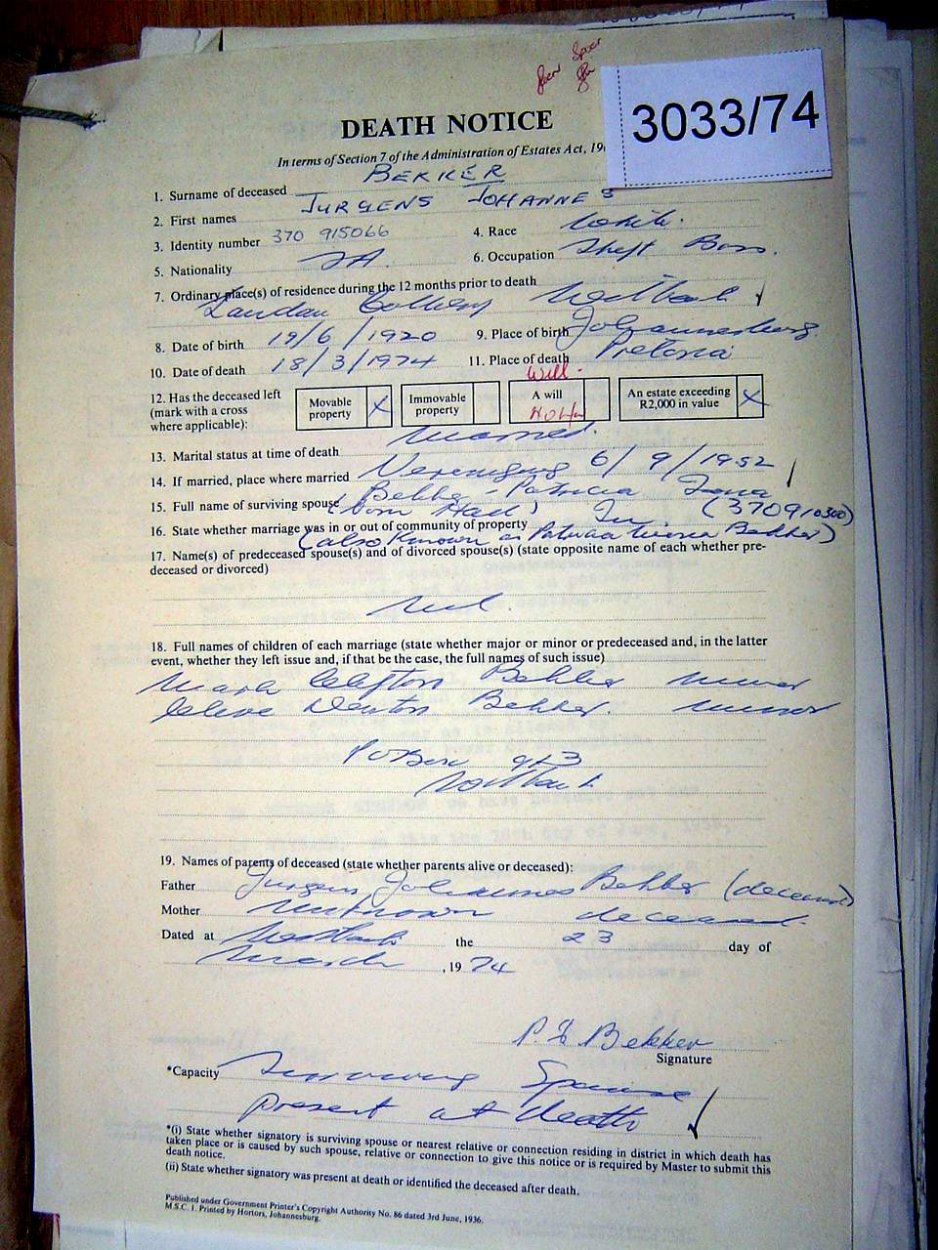 3033/74
DEATH NOTICE
In terms of Section 7 of the Administration of Estates Act, 19
1. Surname of deceased BEKKER
2. First names JURGENS JOHANNES
3. Identity number 370 915066 4. Race White.
5. Nationality SA. 6. Occupation Shift Boss.
7. Ordinary place(s) of residence during the 12 months prior to death
Landau Colliery Witbank
8. Date of birth 19/6/1920 9. Place of birth Johannesburg
10. Date of death 18/3/1974 11. Place of death Pretoria
Will.
12. Has the deceased left (mark with a cross where applicable): Movable property X Immovable property A will An estate exceeding R2,000 in value X
13. Marital status at time of death Married.
14. If married, place where married Vereeniging 6/9/1952
15. Full name of surviving spouse Bekker - Patricia (born Hall) (370910300)
16. State whether marriage was in or out of community of property In.
(also known as Patricia Bekker)
17. Name(s) of predeceased spouse(s) and of divorced spouse(s) (state opposite name of each whether pre-
deceased or divorced)
Nil.
18. Full names of children of each marriage (state whether major or minor or predeceased and, in the latter
event, whether they left issue and, if that be the case, the full names of such issue)
Mark Clifton Bekker minor
Clive Bekker. minor
P O Box 913
Witbank
19. Names of parents of deceased (state whether parents alive or deceased):
Father Jurgens Johannes Bekker (deceased)
Mother Unknown deceased.
Dated at Witbank the 23 day of
March, 1974
Bekker
Signature
*Capacity Surviving Spouse
present at death
*(i) State whether signatory is surviving spouse or nearest relative or connection residing in district in which death has
taken place or is caused by such spouse, relative or connection to give this notice or is required by Master to submit this
death notice.
(ii) State whether signatory was present at death or identified the deceased after death.
Published under Government Printer's Copyright Authority No. 86 dated 3rd June, 1936.
M.S.C. 1. Printed by Hortors, Johannesburg.